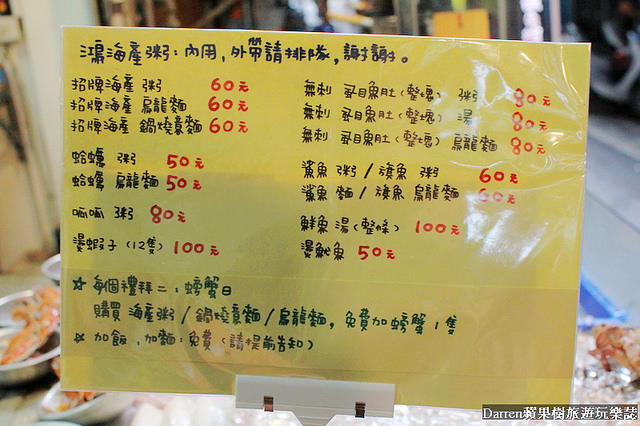 鴻海產粥：內用，外帶請排隊，謝謝。
招牌海產 粥 60元
招牌海產 烏龍麵 60元
招牌海產 鍋燒意麵 60元
蛤蠣 粥 50元
蛤蠣 烏龍麵 50元
呱呱 粥 80元
燙蝦子（12隻）100元
無刺 虱目魚肚（整塊）粥 80元
無刺 虱目魚肚（整塊）湯 80元
無刺 虱目魚肚（整塊）烏龍麵 80元
鯊魚 粥 / 旗魚 粥 60元
鯊魚 麵 / 旗魚 烏龍麵 60元
鮮魚 湯（整條）100元
燙魷魚 50元
☆ 每個禮拜二：螃蟹日
購買 海產粥 / 鍋燒意麵 / 烏龍麵，免費加螃蟹 1 隻
☆ 加飯，加麵：免費（請提前告知）
Darren蘋果樹旅遊玩樂誌